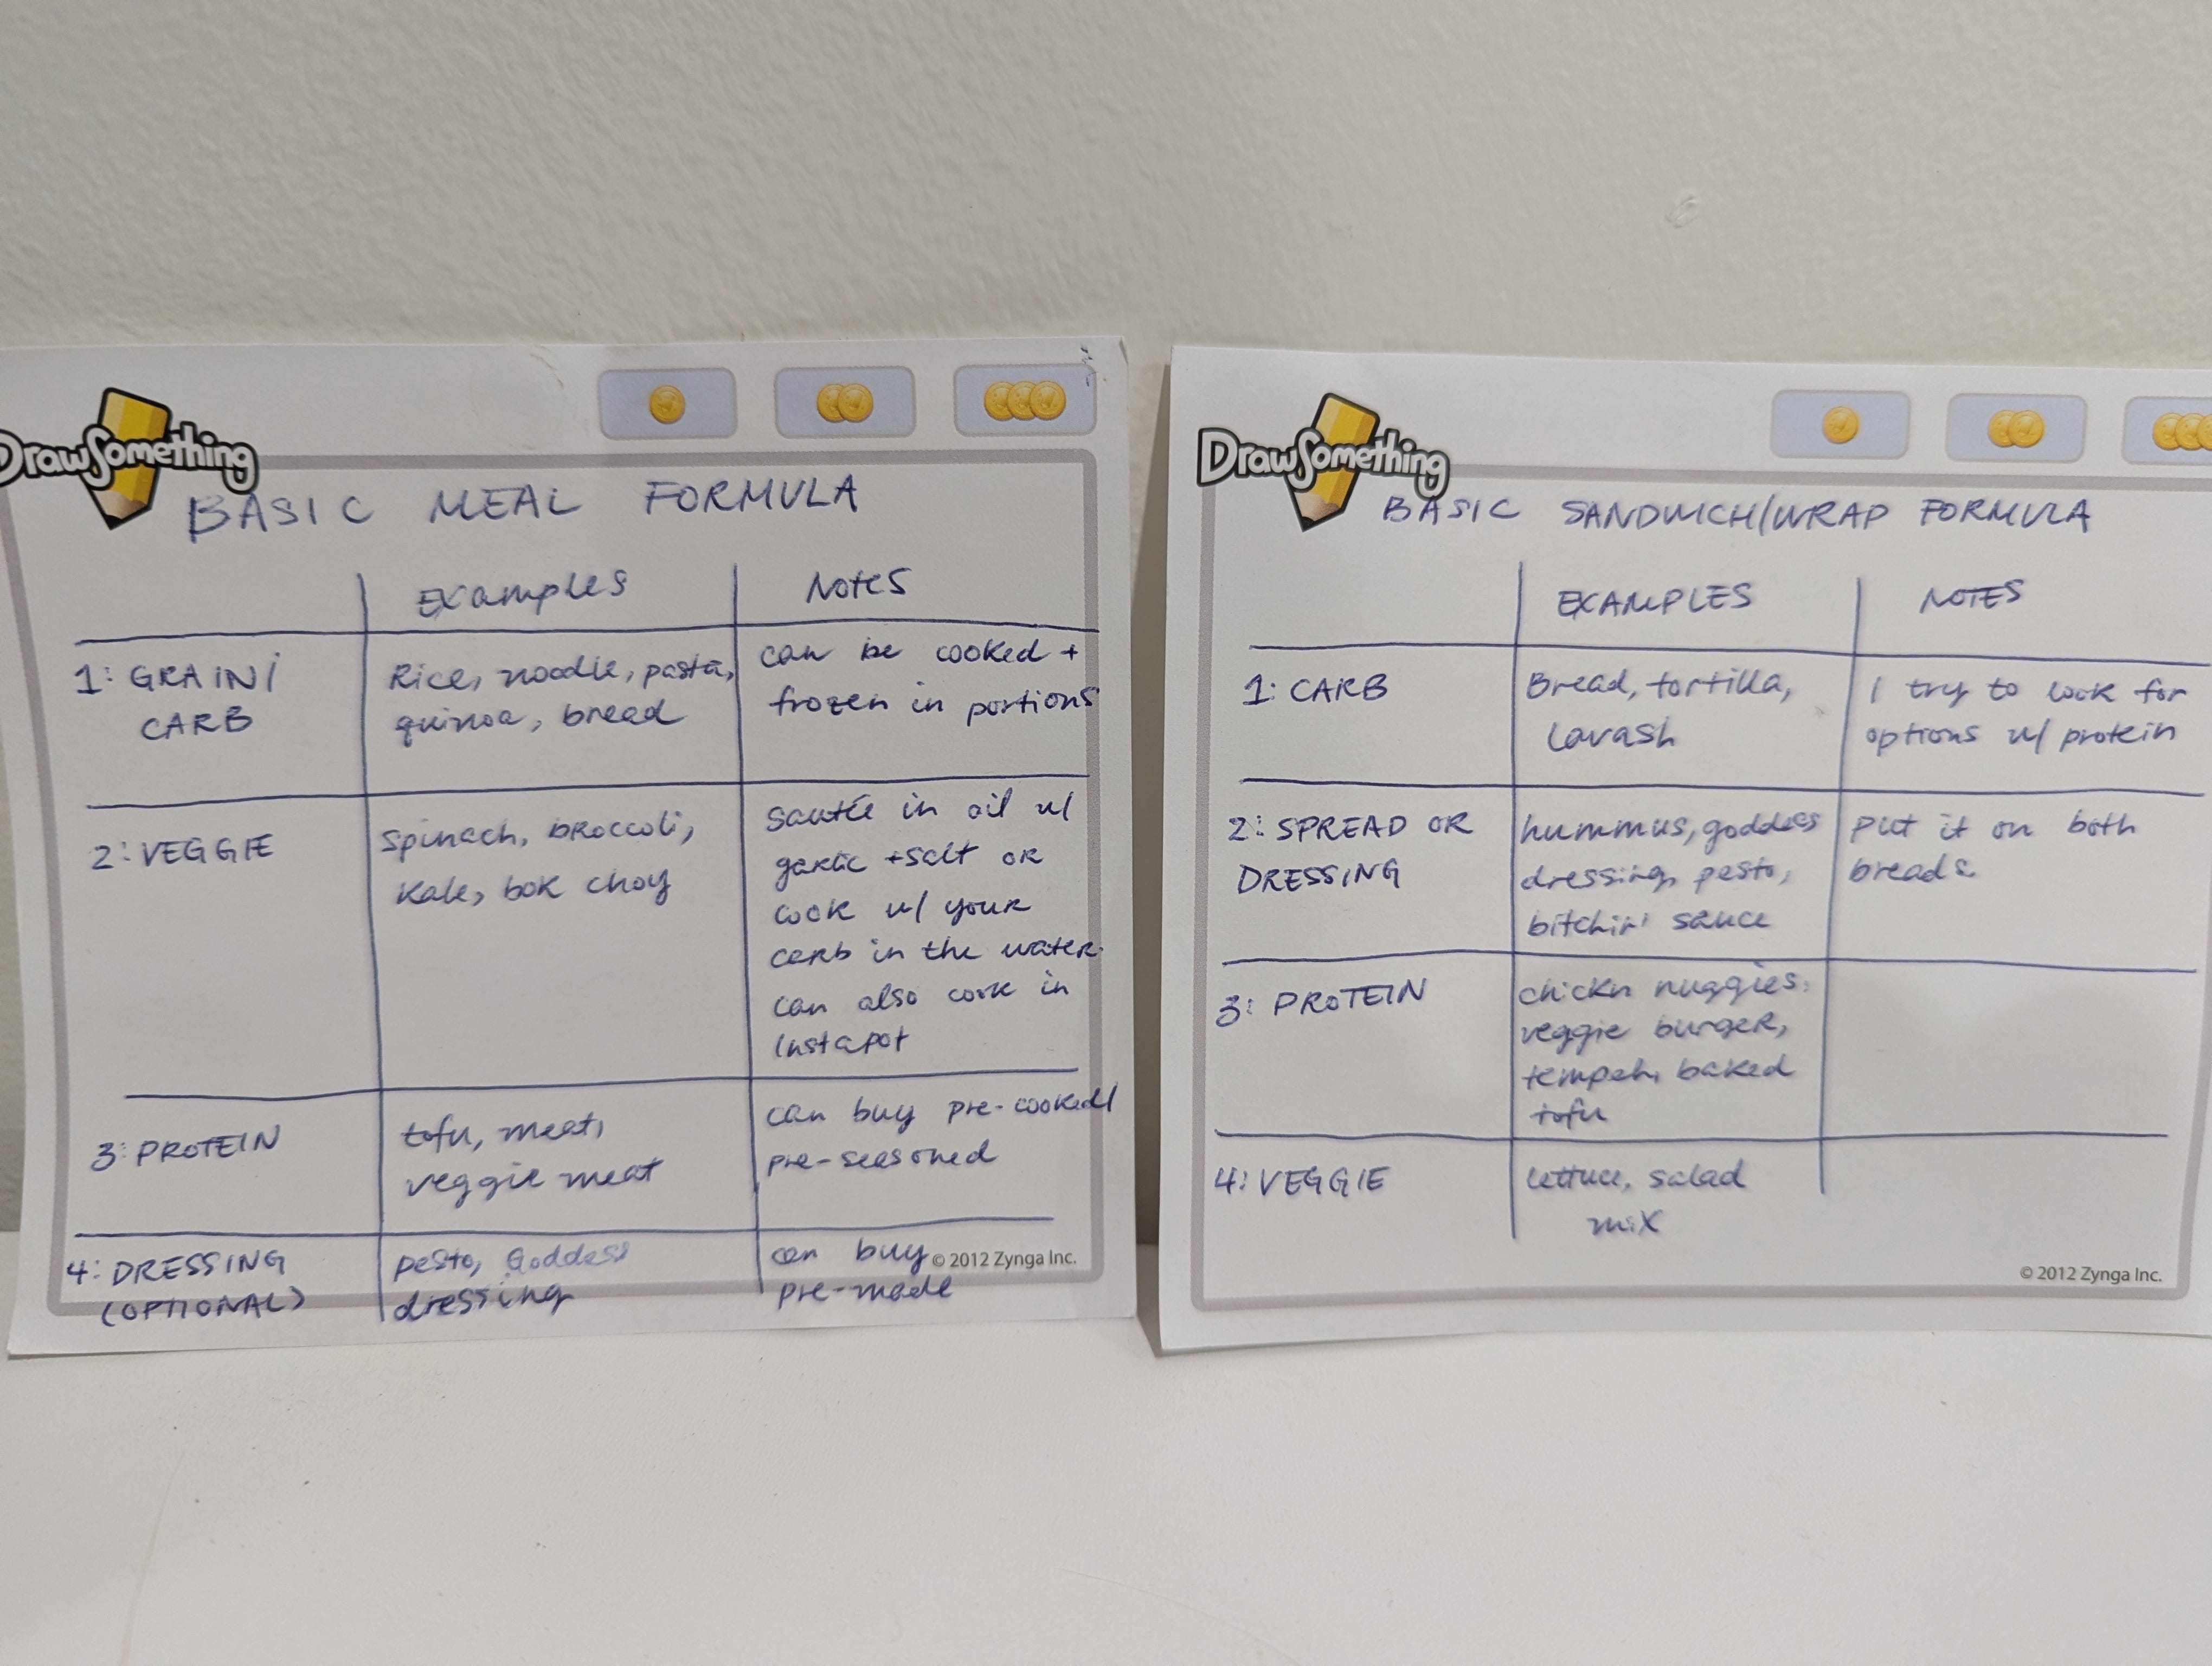 DrawSomething
BASIC MEAL FORMULA
Examples
Notes
1: GRAIN/
CARB
Rice, noodle, pasta,
quinoa, bread
can be cooked +
frozen in portions
2: VEGGIE
Spinach, broccoli,
Kale, bok choy
sautée in oil w/
garlic + salt or
cook w/ your
carb in the water.
can also cook in
instapot
3: PROTEIN
tofu, meat,
veggie meat
can buy pre-cooked/
pre-seasoned
4: DRESSING
(OPTIONAL)
pesto, Goddess
dressing
can buy
pre-made
© 2012 Zynga Inc.
DrawSomething
BASIC SANDWICH/WRAP FORMULA
EXAMPLES
NOTES
1: CARB
Bread, tortilla,
lavash
I try to look for
options w/ protein
2: SPREAD OR
DRESSING
hummus, goddess
dressing, pesto,
bitchin' sauce
put it on both
breads.
3: PROTEIN
chickn nuggies,
veggie burger,
tempeh, baked
tofu
4: VEGGIE
lettuce, salad
mix
© 2012 Zynga Inc.